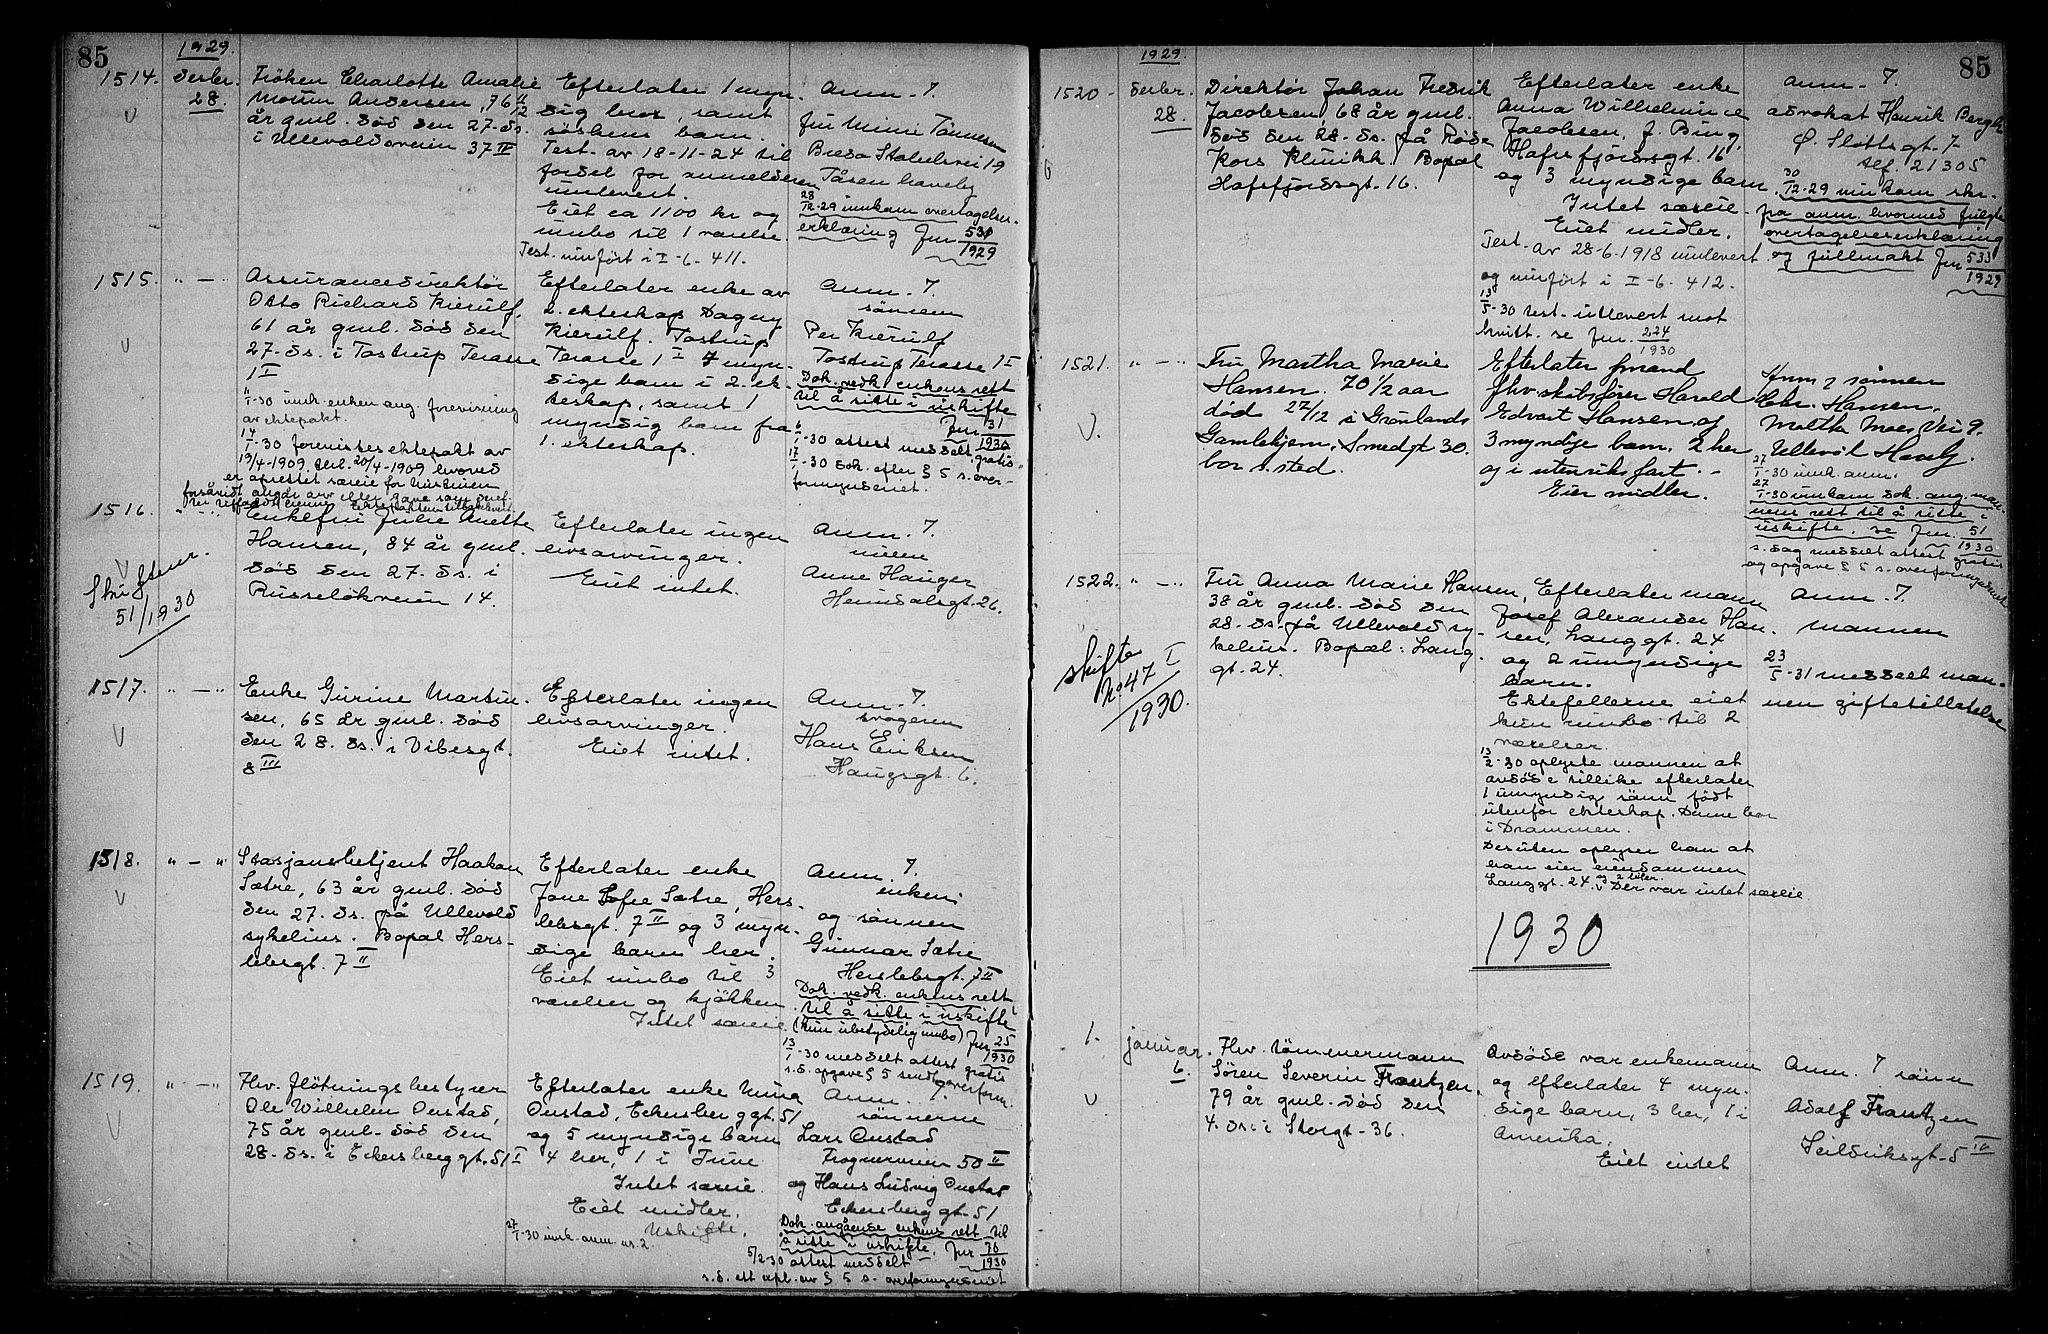 85
1929.
1514.
Desbr.
28.
Frøken Charlotte Amalie
Andersen, 76
år gml. død den 27. ds.
i Ullevoldsveien 37 IV
Efterlater 1 myn-
dig bror, samt
søskens barn.
Test. av 18-11-24 til
fordel for anmelderen
innlevert.
Eiet ca 1100 kr og
innbo til 1 værelse.
Test. innført i I-6-411.
Anm. 7.
Frk Mimi Tønnesen
19
Tåsen haveby
28/12-29 innkom overtagelses-
erklæring Jnr 531/1929
1515.
" — "
Assurancedirektør
Otto Richard Kierulf,
61 år gml. død den
27. ds. i Tostrup Terasse
1 I
II/I-30 innk. enken ang. forevisning
av ektepakt.
14/I-30 forevistes ektepakt av
19/4-1909, tinl. 20/4-1909 hvorved
er oprettet særeie for hustruen
Efterlater enke av
2. ekteskap Dagny
Kierulf. Tostrup
Terasse 1 I 7 myn-
dige barn i 2. ek-
teskap, samt 1
myndig barn fra
1. ekteskap.
Anm. 7.
sønnen
Per Kierulf
Tostrup Terasse 1 I
Dok. vedk. enkens rett
til å sitte i uskifte
Jnr 31/1930
-30 attest meddelt gratis.
17/I-30 dok. efter § 5 s. over-
formynderiet.
1516.
V
Skiftenr.
51/1930
" — "
Enkefru Julie Anette
Hansen, 84 år gml.
død den 27. ds. i
Russeløkveien 14.
Efterlater ingen
livsarvinger.
Eiet intet.
Anm. 7.
niesen
Anne Hauger
Heimdalsgt. 26.
1517.
V
" — "
Enke Gurine Martin-
sen, 65 år gml. død
den 28. ds. i Vibesgt.
8 III
Efterlater ingen
livsarvinger.
Eiet intet.
Anm. 7.
svogeren
Hans Eriksen
Haugsgt. 6.
1518.
V
" — "
Stasjonsbetjent Haakon
Sætre, 63 år gml. død
den 27. ds. på Ullevold
sykehus. Bopæl Hers-
lebsgt. 7 II
Efterlater enke
Jone Sofie Sætre, Hers-
lebsgt. 7 II og 3 myn-
dige barn her.
Eiet innbo til 3
værelser og kjøkken
Intet særeie.
Anm. 7.
enken
og sønnen
Gunnar Sætre
Herslebsgt. 7 II
Dok. vedk. enkens rett
til å sitte i uskifte
(kun ubetydelig innbo) Jnr 25/1930
13/I-30 meddelt attest gratis
s.d. opgave § 5 sendt overform.
1519.
V
" — "
Fhv. fløtningsbestyrer
Ole Wilhelm Onstad,
75 år gml. død den
28. ds. i Eckersberggt. 51 I
Efterlater enke Unna
Onstad, Eckersberggt. 51
og 5 myndige barn
4 her, 1 i Tune
Intet særeie.
Eiet midler.
Uskifte.
27/I-30 innk. anm. nr. 2.
Anm. 7.
sønnene
Lars Onstad
Frognerveien 50 II
og Hans Ludvig Onstad
Eckersberggt. 51
Dok. angående enkens rett til
å sitte i uskifte. Jnr 76/1930
5/2-30 attest meddelt
s.d. ett expl. av § 5 s. overformynderiet
85
1929.
1520.
Desbr.
28.
Direktør Johan Fredrik
Jacobsen, 68 år gml.
død den 28. ds. på Røde
Kors Klinikk. Bopæl
Hafrsfjordsgt. 16.
Efterlater enke
Anna Wilhelmine
Jacobsen, f. Bing,
Hafrsfjordsgt. 16
og 3 myndige barn
Intet særeie.
Eiet midler.
Test. av 28-6-1918 innlevert
og innført i I-6-412.
13/5-30 test. utlevert mot
kvitt. se Jnr. 224/1930
Anm. 7.
advokat Henrik Bergh
Ø. Slottsgt. 7
tlf. 21305
30/12-29 innkom skr.
fra anm. hvormed fulgte
overtagelseserklæring
og fullmakt Jnr 533/1929
1521.
V.
" — "
Fru Martha Marie
Hansen. 70 1/2 aar
død 27/12 i Grønlands
Gamlehjem, Smedgt 30.
bor s. sted.
Efterlater mand
fhv. skibsfører Harold
Edvart Hansen og
3 myndige barn. 2 her
og i utenriksfart.
Eier midler.
Anm 7 sønnen
Chr. Hansen.
Moltke Moes Vei 9.
Ullevål Haveby.
27/I-30 innk. anm.
27/I-30 innkom dok. ang. man-
nens rett til å sitte i
uskifte. se Jnr. 51/1930
s. dag meddelt attest gratis
og opgave § 5 s. overformynderiet
1522.
skifte
No 47 I
1930.
" — "
Fru Anna Marie Hansen,
38 år gml. død den
28. ds. på Ullevold sy-
kehus. Bopæl: Lang-
gt. 24.
Efterlater mann
Josef Alexander Han-
sen, Langgt. 24
og 2 umyndige
barn.
Ektefellerne eiet
kun innbo til 2
værelser.
13/2-30 oplyste mannen at
avdøde tillike efterlater
1 umyndig sønn født
utenfor ekteskap. Denne bor
i Drammen.
Desuten oplyser han at
han eier eiendommen
Langgt. 24. Der var intet særeie
Anm. 7.
mannen
23/5-31 meddelt man-
nen giftetillatelse
1930
1.
V
januar
6.
Fhv. tømmermann
Søren Severin Frantzen,
79 år gml. død den
4. ds. i Storgt. 36.
Avdøde var enkemann
og efterlater 4 myn-
dige barn, 3 her, 1 i
Amerika.
Eiet intet
Anm. 7 sønn
Adolf Frantzen
Seilduksgt. 5 III